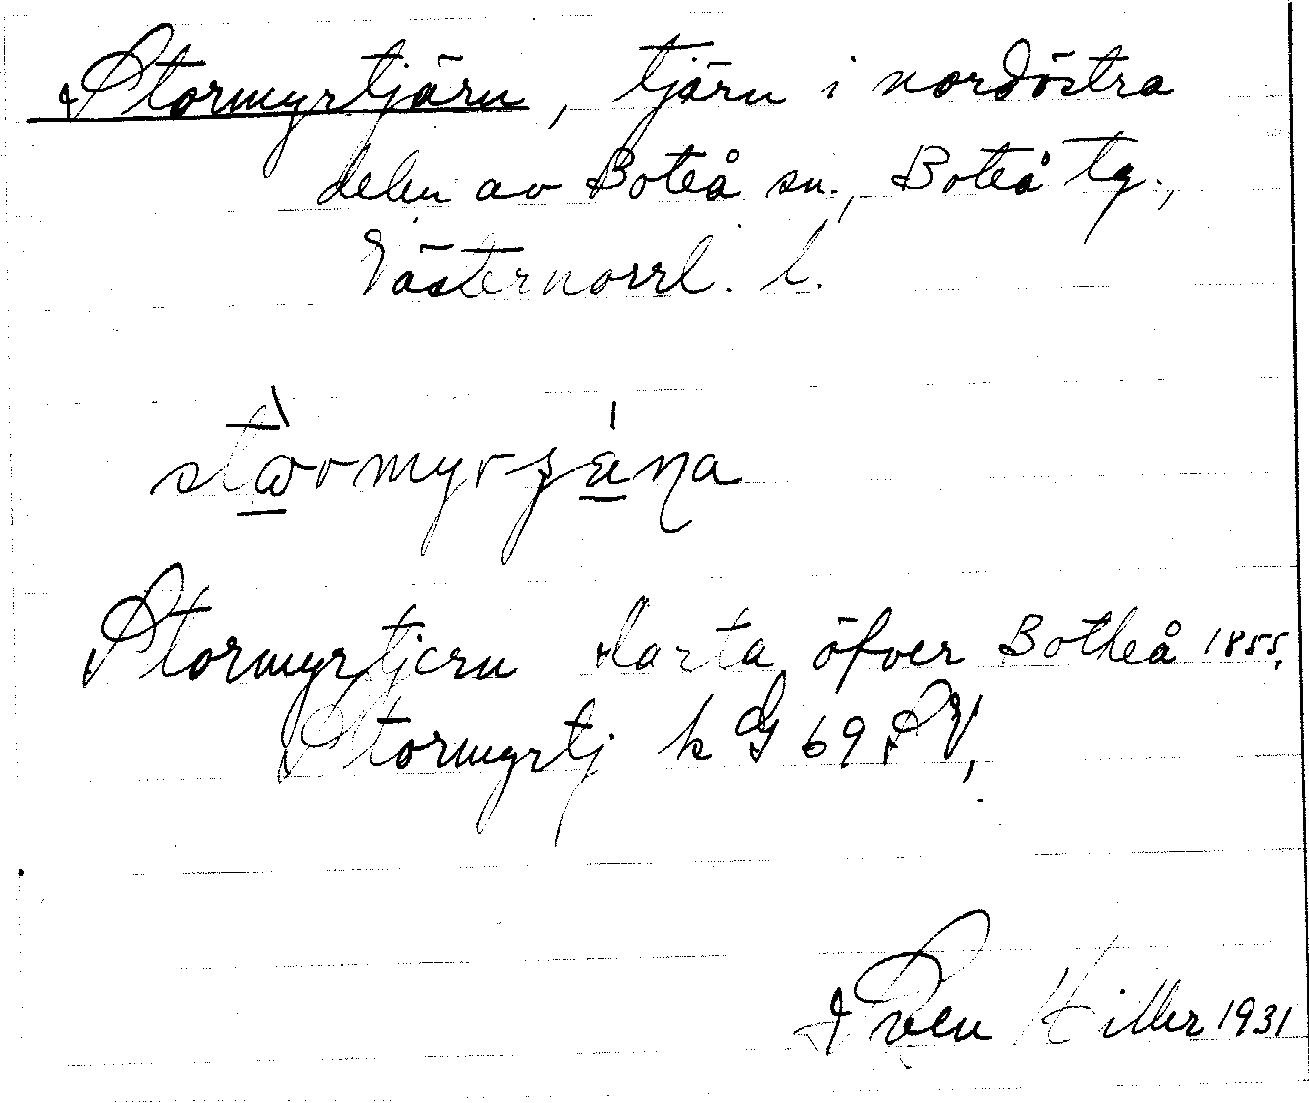 Stormyrtjärn, tjärn i nordöstra
delen av Boteå sn., Boteå tg.,
Västernorrl. l.
Stormyrtjern karta öfver Botheå 1855.
Stormyrtj k G 69 SV,
Sven Hiller 1931